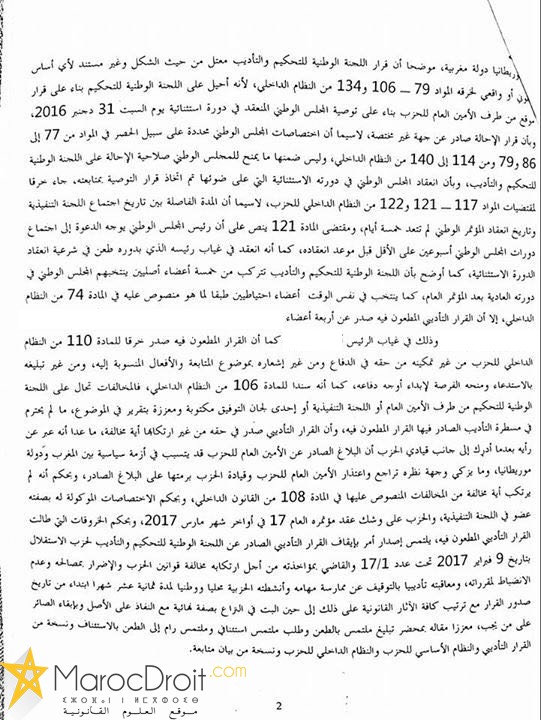 وريطانيا دولة مغربية، موضحا أن قرار اللجنة الوطنية للتحكيم والتأديب معتل من حيث الشكل وغير مستند لأي أساس
أو واقعي لخرقه المواد 79 — 106 و134 من النظام الداخلي، لأنه أحيل على اللجنة الوطنية للتحكيم بناء على قرار
موقع من طرف الأمين العام للحزب بناء على توصية المجلس الوطني المنعقد في دورة استثنائية يوم السبت 31 دجنبر 2016،
وبأن قرار الإحالة صادر عن جهة غير مختصة، لاسيما أن اختصاصات المجلس الوطني محددة على سبيل الحصر في المواد من 77 إلى
86 و79 ومن 114 إلى 140 من النظام الداخلي، وليس ضمنها ما يمنح للمجلس الوطني صلاحية الإحالة على اللجنة الوطنية
للتحكيم والتأديب، وبأن انعقاد المجلس الوطني في دورته الاستثنائية التي على ضوئها تم اتخاذ قرار التوصية بمتابعته، جاء خرقا
لمقتضيات المواد 117 — 121 و122 من النظام الداخلي للحزب، لاسيما أن المدة الفاصلة بين تاريخ اجتماع اللجنة التنفيذية
وتاريخ انعقاد المؤتمر الوطني لم تتعد خمسة أيام، ومقتضى المادة 121 ينص على أن رئيس المجلس الوطني يوجه الدعوة إلى اجتماع
دورات المجلس الوطني أسبوعين على الأقل قبل موعد انعقاده، كما أنه انعقد في غياب رئيسه الذي بدوره طعن في شرعية انعقاد
الدورة الاستثنائية، كما أوضح بأن اللجنة الوطنية للتحكيم والتأديب تتركب من خمسة أعضاء أصليين ينتخبهم المجلس الوطني في
دورته العادية بعد المؤتمر العام، كما ينتخب في نفس الوقت أعضاء احتياطيين طبقا لما هو منصوص عليه في المادة 74 من النظام
الداخلي، إلا أن القرار التأديبي المطعون فيه صدر عن أربعة أعضاء
وذلك في غياب الرئيس كما أن القرار المطعون فيه صدر خرقا للمادة 110 من النظام
الداخلي للحزب من غير تمكينه من حقه في الدفاع ومن غير إشعاره بموضوع المتابعة والأفعال المنسوبة إليه، ومن غير تبليغه
بالاستدعاء ومنحه الفرصة لإبداء أوجه دفاعه، كما أنه سندا للمادة 106 من النظام الداخلي، فالمخالفات تحال على اللجنة
الوطنية للتحكيم من طرف الأمين العام أو اللجنة التنفيذية أو إحدى لجان التوفيق مكتوبة ومعززة بتقرير في الموضوع، ما لم يحترم
في مسطرة التأديب الصادر فيها القرار المطعون فيه، وأن القرار التأديبي صدر في حقه من غير ارتكابها أية مخالفة، ما عدا أنه عبر عن
رأيه بعدما أدرك إلى جانب قيادي الحزب أن البلاغ الصادر عن الأمين العام للحزب قد يتسبب في أزمة سياسية بين المغرب ودولة
موريطانيا، وما يزكي وجهة نظره تراجع واعتذار الأمين العام للحزب وقيادة الحزب برمتها على البلاغ الصادر، وبحكم أنه لم
يرتكب أية مخالفة من المخالفات المنصوص عليها في المادة 108 من القانون الداخلي، وبحكم الاختصاصات الموكولة له بصفته
عضو في اللجنة التنفيذية، والحزب على وشك عقد مؤتمره العام 17 في أواخر شهر مارس 2017، وبحكم الخروقات التي طالت
القرار التأديبي المطعون فيه، يلتمس إصدار أمر بإيقاف القرار التأديبي الصادر عن اللجنة الوطنية للتحكيم والتأديب لحزب الاستقلال
بتاريخ 9 فبراير 2017 تحت عدد 17/1 والقاضي بمؤاخذته من أجل ارتكابه مخالفة قوانين الحزب والإضرار بمصالحه وعدم
الانضباط لمقرراته، ومعاقبته تأديبيا بالتوقيف عن ممارسة مهامه وأنشطته الحزبية محليا ووطنيا لمدة ثمانية عشر شهرا ابتداء من تاريخ
صدور القرار مع ترتيب كافة الآثار القانونية على ذلك إلى حين البت في النزاع بصفة نهائية مع النفاذ على الأصل وبإبقاء الصائر
على من يجب، معززا مقاله بمحضر تبليغ ملتمس بالطعن وطلب ملتمس استئنافي وملتمس رام إلى الطعن بالاستئناف ونسخة من
القرار التأديبي والنظام الأساسي للحزب والنظام الداخلي للحزب ونسخة من بيان متابعة.
MarocDroit.com
موقع العلوم القانونية
2